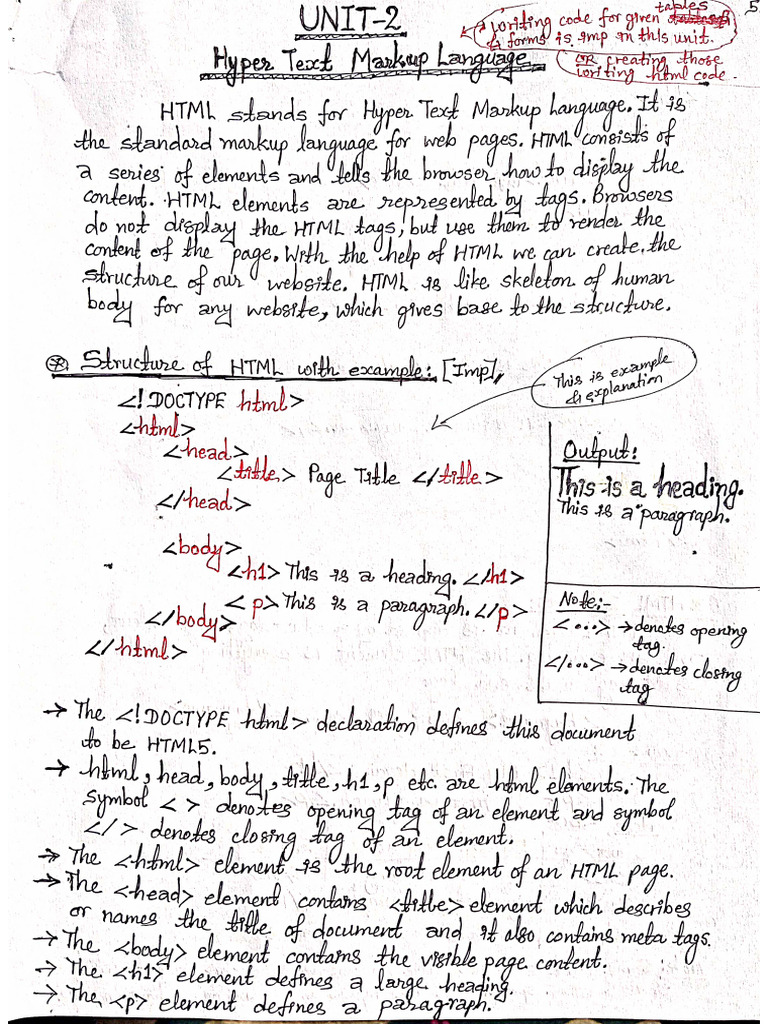 UNIT-2
Writing code for given tables
& forms is imp in this unit.
OR creating those
writing html code.
5
Hyper Text Markup Language
HTML stands for Hyper Text Markup Language. It is
the standard markup language for web pages. HTML consists of
a series of elements and tells the browser how to display the
content. HTML elements are represented by tags. Browsers
do not display the HTML tags, but use them to render the
content of the page. With the help of HTML we can create the
structure of our website. HTML is like skeleton of human
body for any website, which gives base to the structure.
Structure of HTML with example: [Imp]
This is example
& explanation
<!DOCTYPE html>
<html>
<head>
<title> Page Title </title>
</head>
<body>
<h1> This is a heading. </h1>
<p> This is a paragraph. </p>
</body>
</html>
Output:
This is a heading.
This is a paragraph.
Note:-
<...> → denotes opening
tag.
</...> → denotes closing
tag
→ The <!DOCTYPE html> declaration defines this document
to be HTML5.
→ html, head, body, title, h1, p etc. are html elements. The
symbol < > denotes opening tag of an element and symbol
</ > denotes closing tag of an element.
→ The <html> element is the root element of an HTML page.
→ The <head> element contains <title> element which describes
or names the title of document and it also contains meta tags.
→ The <body> element contains the visible page content.
→ The <h1> element defines a large heading.
→ The <p> element defines a paragraph.